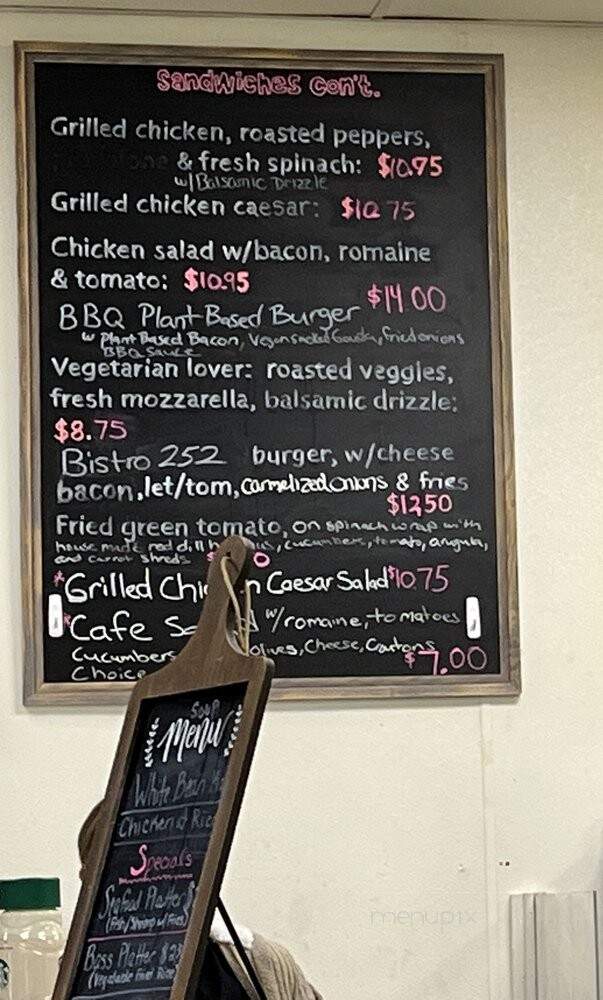 Sandwiches con't.
Grilled chicken, roasted peppers,
& fresh spinach: $10.95
w/Balsamic Drizzle
Grilled chicken caesar: $10 75
Chicken salad w/bacon, romaine
& tomato: $10.95
BBQ Plant Based Burger $14.00
w Plant Based Bacon, Vegan Smoked Gouda, fried onions
BBQ Sauce
Vegetarian lover: roasted veggies,
fresh mozzarella, balsamic drizzle:
$8.75
Bistro 252 burger, w/cheese
bacon, let/tom, carmelized onions & fries
$12.50
Fried green tomato, on spinach wrap with
house made red dill, cucumbers, tomato, arugula,
and carrot shreds
*Grilled Chicken Caesar Salad $10.75
*Cafe w/romaine, tomatoes
Cucumbers olives, Cheese, Croutons
Choice $7.00
SOUP
Menu
White Bean
Chicken & Rice
Specials
Seafood Platter $
(Fish/Shrimp w/ Fries)
Bass Platter $23
(Vegetable Fried Rice)
menupix